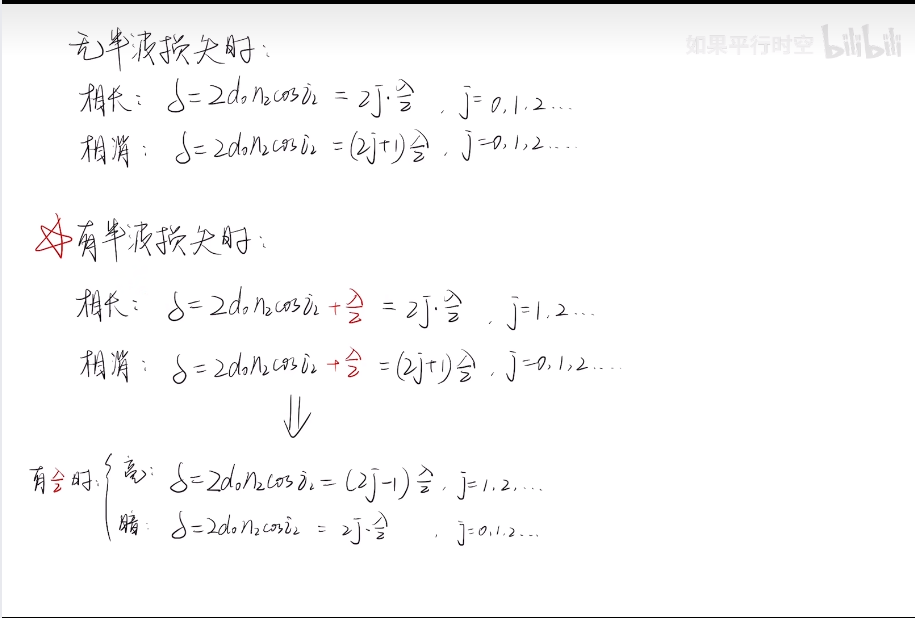 如果平行时空 bilibili
无半波损失时:
相长: δ=2d₀n₂cosi₂ = 2j·λ/2 , j=0,1,2...
相消: δ=2d₀n₂cosi₂ =(2j+1)λ/2 , j=0,1,2....
☆有半波损失时:
相长: δ=2d₀n₂cosi₂+λ/2 = 2j·λ/2 , j=1,2...
相消: δ=2d₀n₂cosi₂+λ/2 =(2j+1)λ/2 , j=0,1,2....
⇓
有λ/2时: { 亮: δ=2d₀n₂cosi₂=(2j-1)λ/2 , j=1,2,...
暗: δ=2d₀n₂cosi₂ = 2j·λ/2 , j=0,1,2...